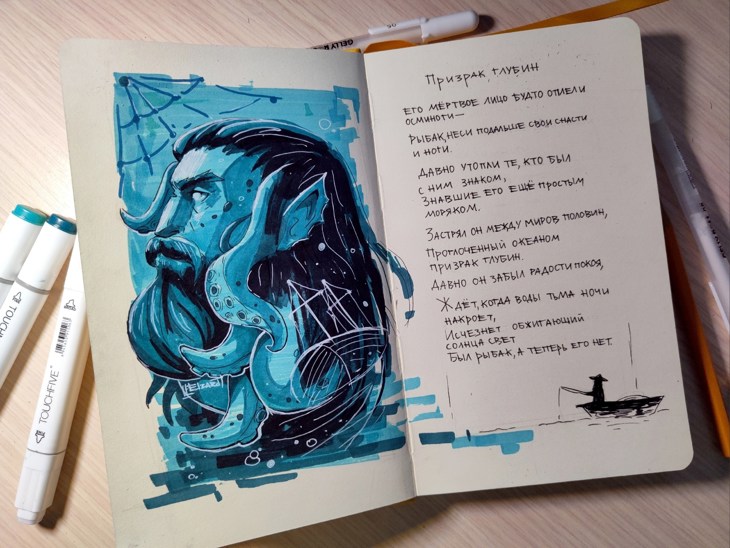 Призрак глубин
Его мёртвое лицо будто оплели
осминоги—
Рыбак, неси подальше свои снасти
и ноги.
Давно утопли те, кто был
с ним знаком,
Знавшие его ещё простым
моряком.
Застрял он между миров половин,
Проглоченный океаном
призрак глубин.
Давно он забыл радости покоя,
Ждёт, когда воды тьма ночи
накроет,
Исчезнет обжигающий
солнца свет
Был рыбак, а теперь его нет.
TOUCHFIVE
TOUCH
GELLY